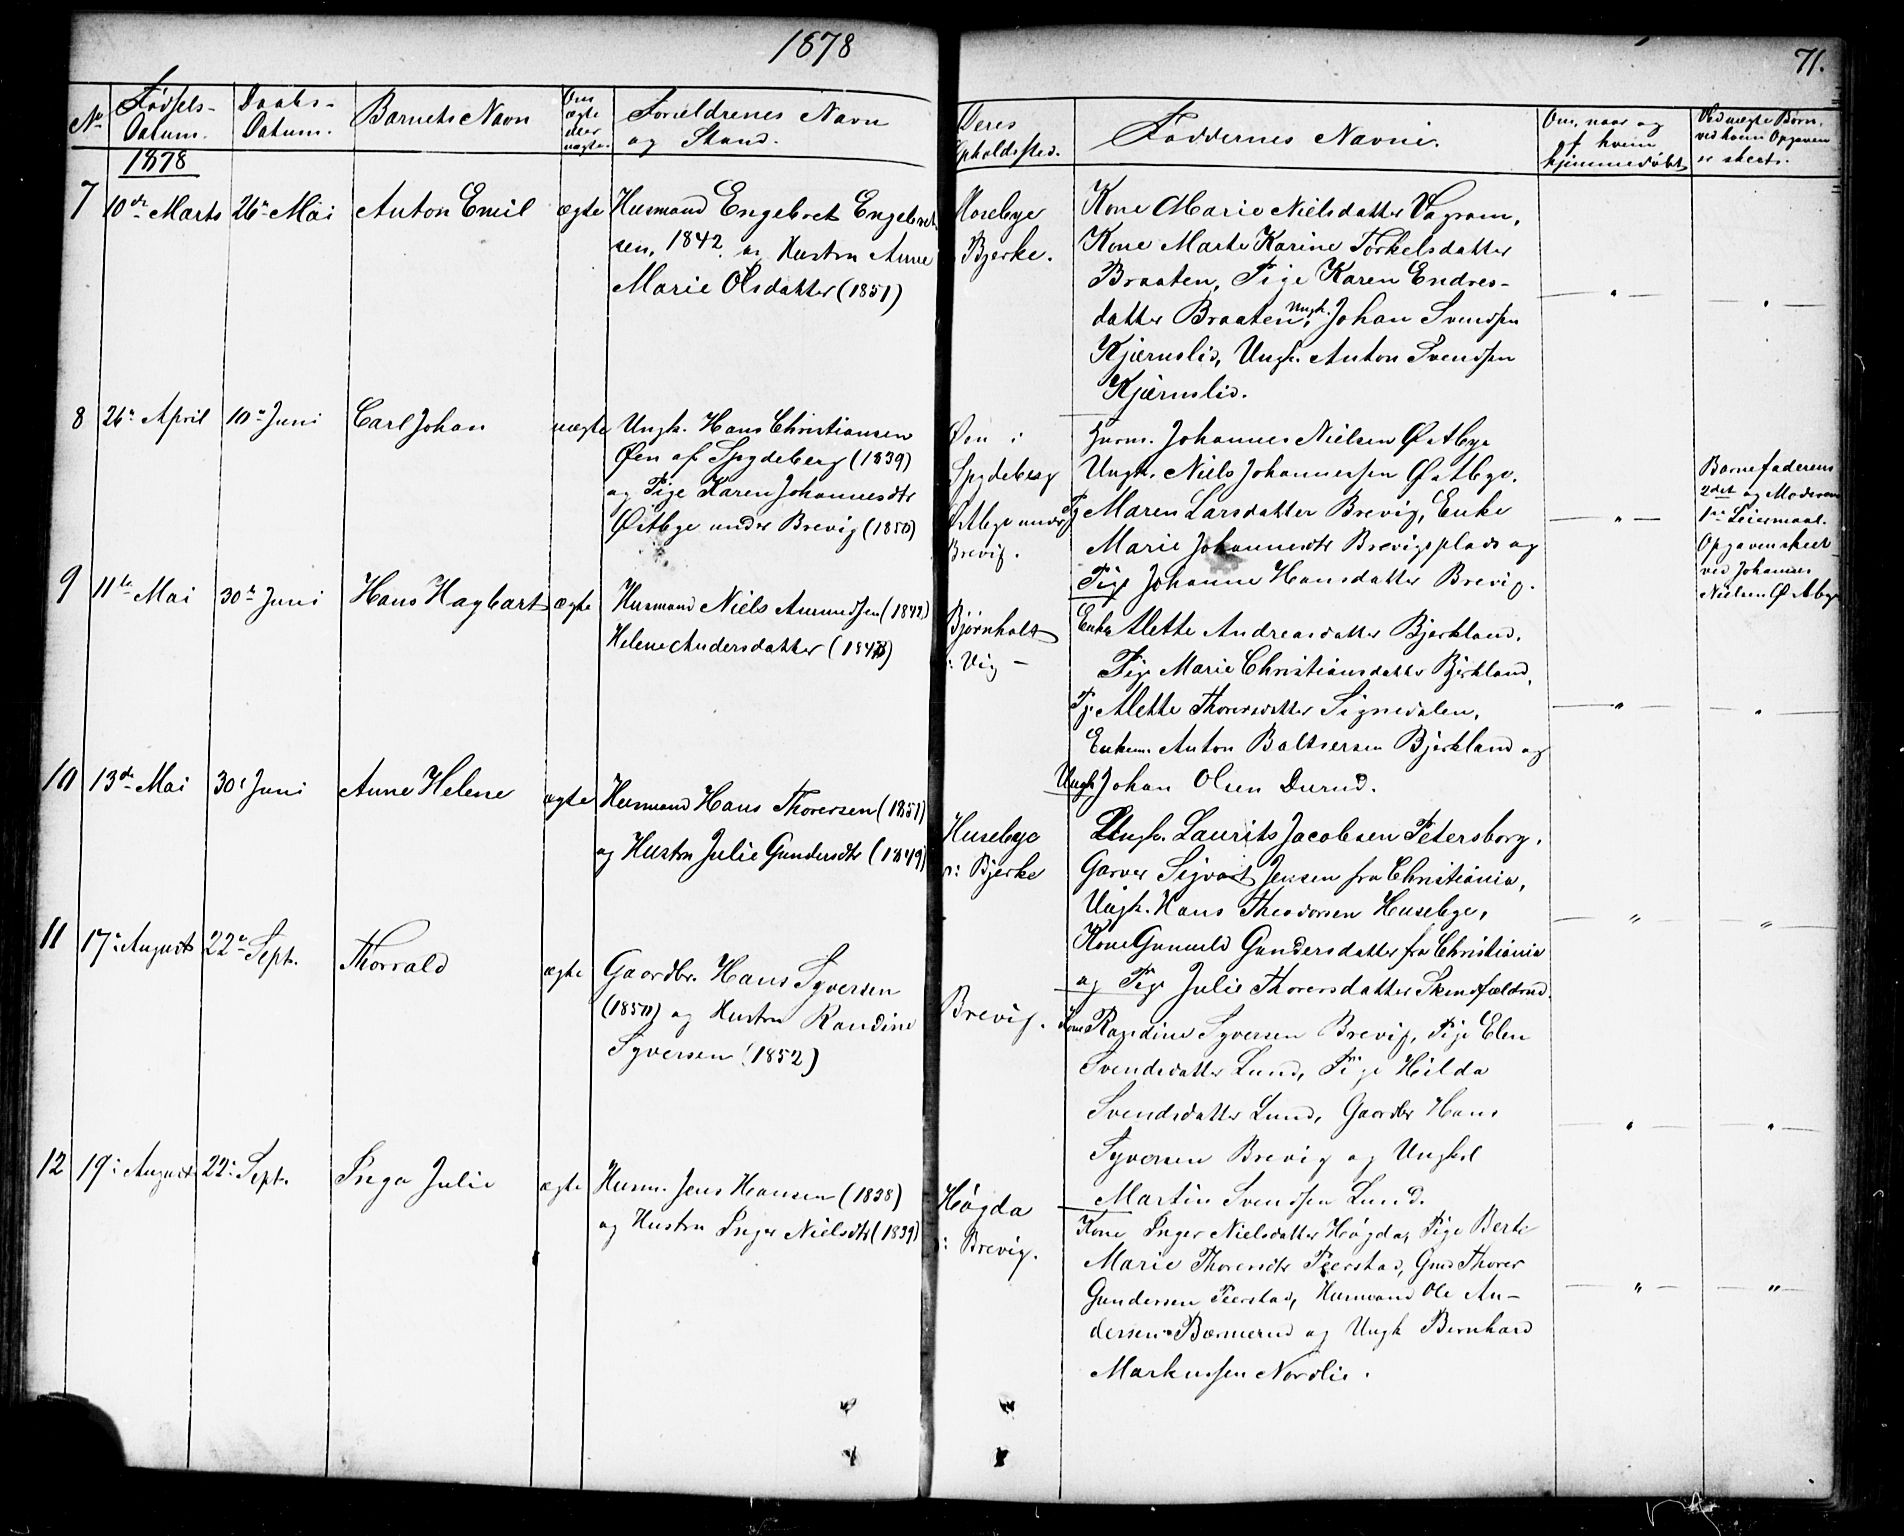 1878
71.
No
Fødsels-
Datum.
Daabs-
Datum.
Barnets Navn
Om
ægte
eller
uægte.
Forældrenes Navn
og Stand.
Deres
Opholdssted.
Faddernes Navne.
Om, naar og
af hvem
hjemmedøbt
Ved uægte Børn,
ved hvem Opgaven
er skeet.
1878
7 10de Marts 26de Mai Anton Emil ægte
Husmand Engebret Engebret
sen, 1842, og Hustru Anne
Marie Olsdatter (1851)
Husebye
Bjerke.
Kone Marie Nielsdatter Vagram,
Kone Marte Karine Torkelsdatter
Braaten, Pige Karen Endres-
datter Braaten, Ungk. Johan Svendsen
Kjærnslid, Ungk. Anton Svendsen
Kjærnslid.
8 26de April 10de Juni Carl Johan uægte
Ungk. Hans Christiansen
Øen af Spydeberg (1839)
og Pige Karen Johannesdtr
Østbye under Brevig (1850)
Øen i
Spydeberg
Østbye under
Brevig.
Husm. Johannes Nielsen Østbye
Ungk. Niels Johannessen Østbye.
Pg Maren Larsdatter Brevig, Enke
Marie Johannesdtr Brevigsplads og
Pige Johanne Hansdatter Brevig.
Barnefaderens
2det og Moderens
1ste Leiermaal.
Opgaven skeet
ved Johannes
Nielsen Østbye
9 11te Mai 30te Juni Hans Hagbart ægte
Husmand Niels Amundsen (1842)
Helene Andersdatter
Bjørnholt
i Vig -
Enke Alette Andreasdatter Bjerkland,
Pige Marie Christiansdatter Bjerkland,
Pg. Alette Thoresdatter Signedalen,
Enkem. Anton Baltsersen Bjerkland og
Ungk. Johan Olsen Durud.
10 13de Mai 30te Juni Anne Helene ægte
Husmand Hans Thoresen (1851)
og Hustru Julie Gundersdtr (1849)
Husebye
i Bjerke
Ungk. Laurits Jacobsen Petersborg,
Garver Sigvart Jensen fra Christiania,
Ungk. Hans Theodorsen Husebye,
Kone Gunuld Gundersdatter fra Christiania
og Pige Julie Thoresdatter Skindfældrud.
11 17de August 22de Sept. Thorvald ægte
Gaardbr. Hans Syversen
(1850) og Hustru Randine
Syversen (1852)
Brevig.
Kone Randine Syversen Brevig, Pige Elen
Svendsdatter Lund, Pige Hilda
Svendsdatter Lund, Gaardbr Hans
Syversen Brevig og Ungkl
Martin Svendsen Lund.
12 19de August 22de Sept. Inga Julie ægte
Husm. Jens Hansen (1838)
og Hustru Inger Nielsdtr (1839)
Høgda
i Brevig.
Kone Inger Nielsdatter Høgda, Pige Berte
Marie Thoresdtr Peerstad, Gmd Thorer
Gundersen Peerstad, Husmand Ole An-
dersen Bærnerud og Ungk Bernhard
Markussen Nordlie.